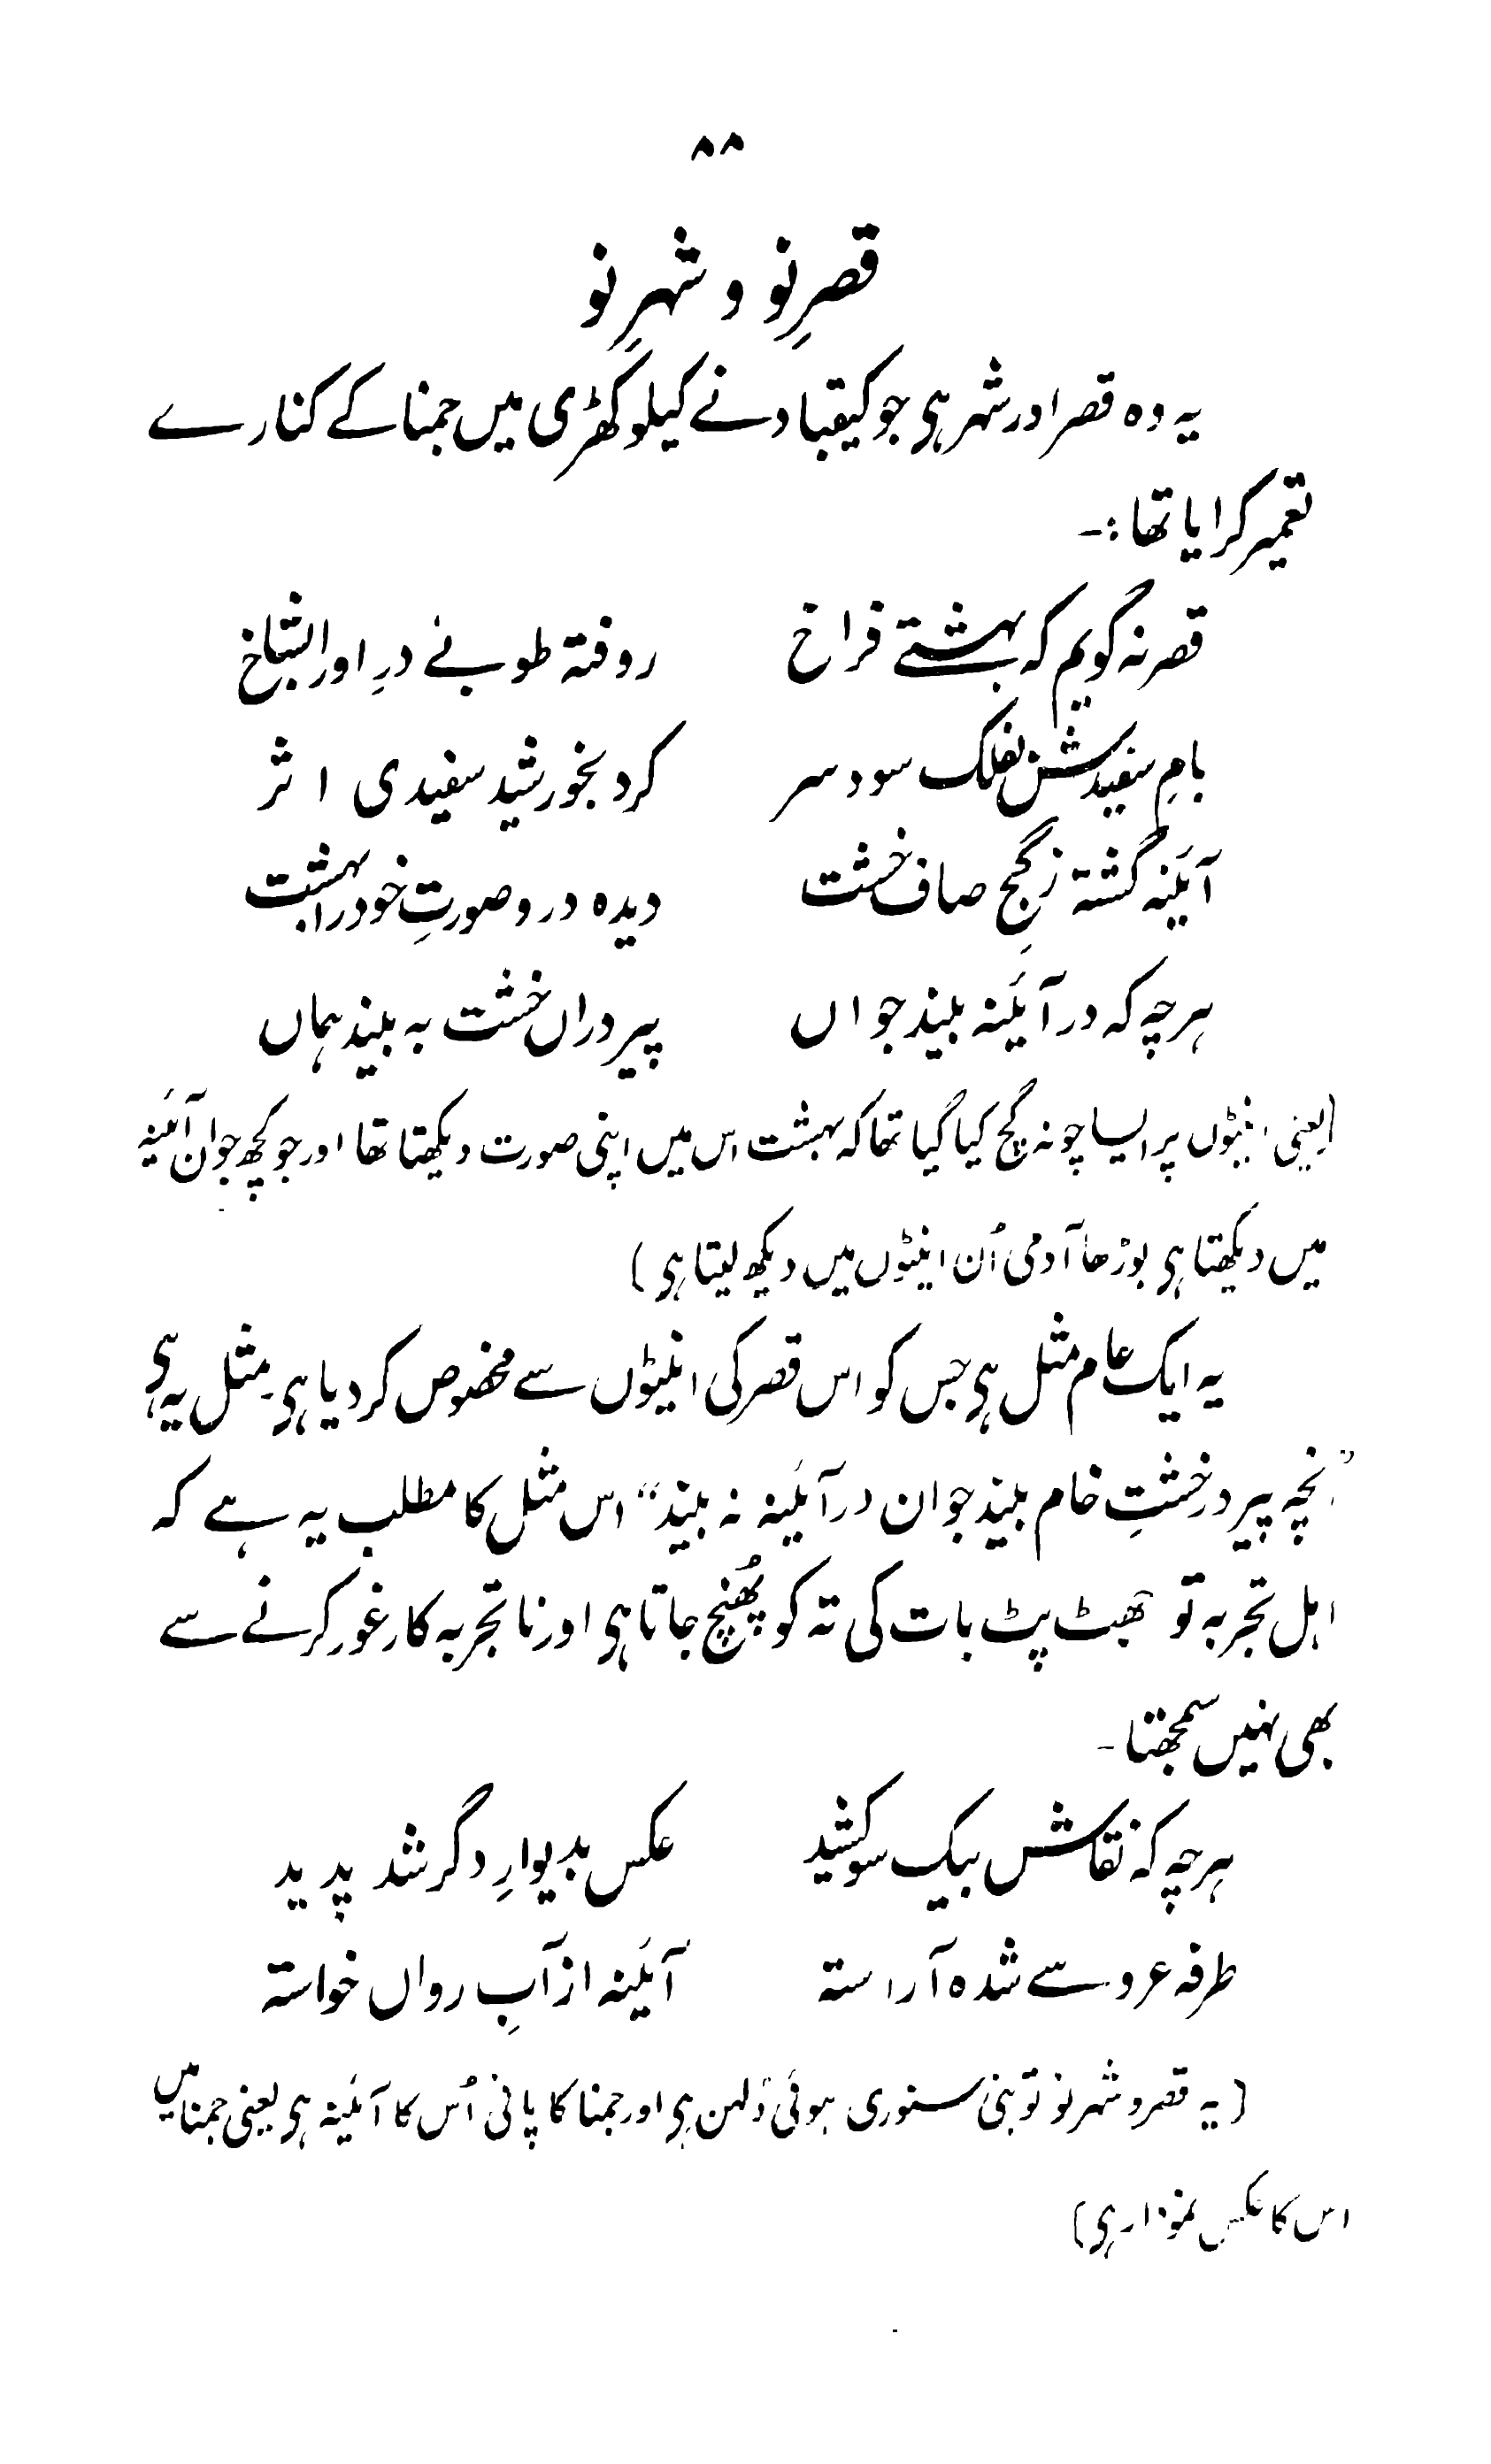 ۸۸
قصرِ نو و شہرِ نو
یہ وہ قصر اور شہر ہی جو کیقباد نے کیلوکھڑی میں جمنا کے کنارے
تعمیر کرایا تھا :-
قصر نہ گویم کہ بہشتے فراخ روفتہ طوبے درِ اورا بشاخ
بامِ سفیدش بفلک سود سر کرد بخورشید سفیدی اثر
آئینہ گشتہ زِ گچ صاف خشت دیدہ درو صورتِ خود را بہشت
ہرچہ کہ در آئینہ بیند جواں پیر دراں خشت بہ بیند ہماں
(یعنی اینٹوں پر ایسا چونہ گچ کیا گیا تھا کہ بہشت اس میں اپنی صورت دیکھتا تھا اور جو کچھ جوان آئینہ
میں دیکھتا ہی بوڑھا آدمی اُن اینٹوں میں دیکھ لیتا ہی)
یہ ایک عام مثل ہی جس کو اس قصر کی اینٹوں سے مخصوص کر دیا ہی۔ مثل یہ ہی
"انچہ پیر در خشتِ خام بیند جوان در آئینہ نہ بیند" اس مثل کا مطلب یہ ہے کہ
اہل تجربہ تو جھٹ پٹ بات کی تہ کو پُھنچ جاتا ہی اور ناتجربہ کار غور کرنے سے
بھی نہیں سمجھتا۔
ہرچہ کہ نقاش بیک سو کشید عکس بدیوارِ دگر شد پدید
طرفہ عروسے شدہ آراستہ آئینہ از آبِ رواں خواستہ
(یہ قصر و شہر نو تو بنی سنوری ہوئی دُلہن ہی اور جمنا کا پانی اُس کا آئینہ ہی یعنی جمنا میں
اس کا عکس نمودار ہی)